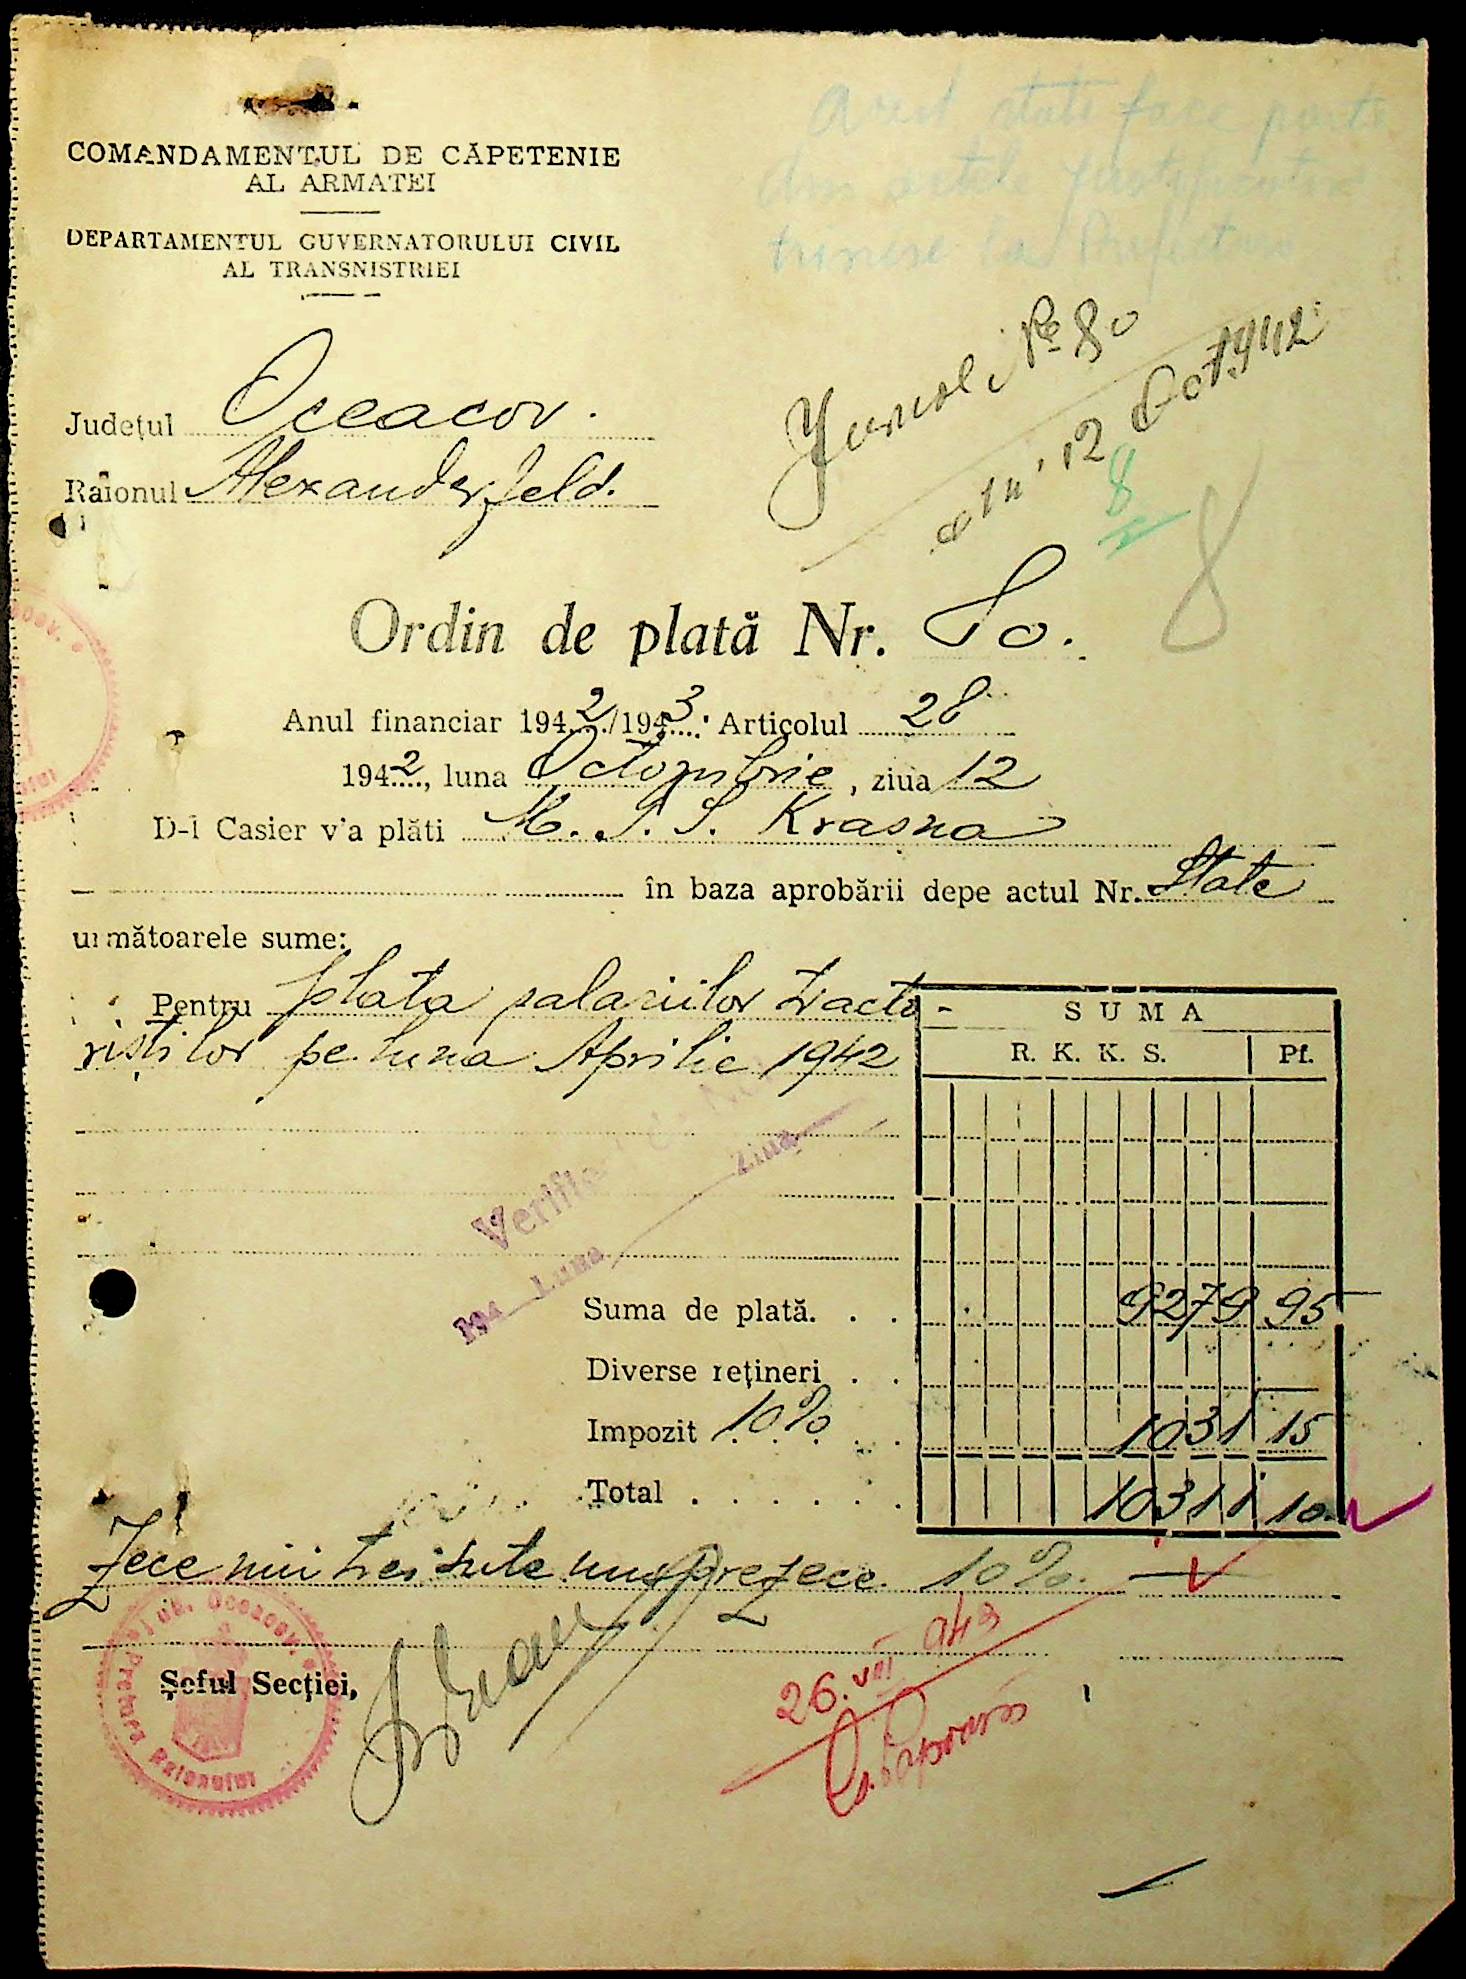 Acest state face parte
din actele justificative
trimise la Prefectura
COMANDAMENTUL DE CĂPETENIE
AL ARMATEI
DEPARTAMENTUL GUVERNATORULUI CIVIL
AL TRANSNISTRIEI
Jurnal Nr. 80
din 12 Oct 1942
8
8
Județul Oceacov.
Raionul Alexanderfeld.
Ordin de plată Nr. 80.
Anul financiar 1942/1943. Articolul 28
1942, luna Octombrie, ziua 12
D-l Casier v'a plăti M. T. S. Krasna
în baza aprobării depe actul Nr. State
următoarele sume:
Pentru plata salariilor tracto-
riștilor pe luna Aprilie 1942
SUMA
R. K. K. S. Pf.
Verificat de Noi
194 Luna Ziua
Suma de plată. . . 9279 95
Diverse rețineri . . —
Impozit 10% . . 1031 15
Total . . . . . . 10311 10
Zece mii trei sute unsprezece 10%. —
Șeful Secției,
Pretura Raionului
Jud. Oceacov.
26.VIII 943